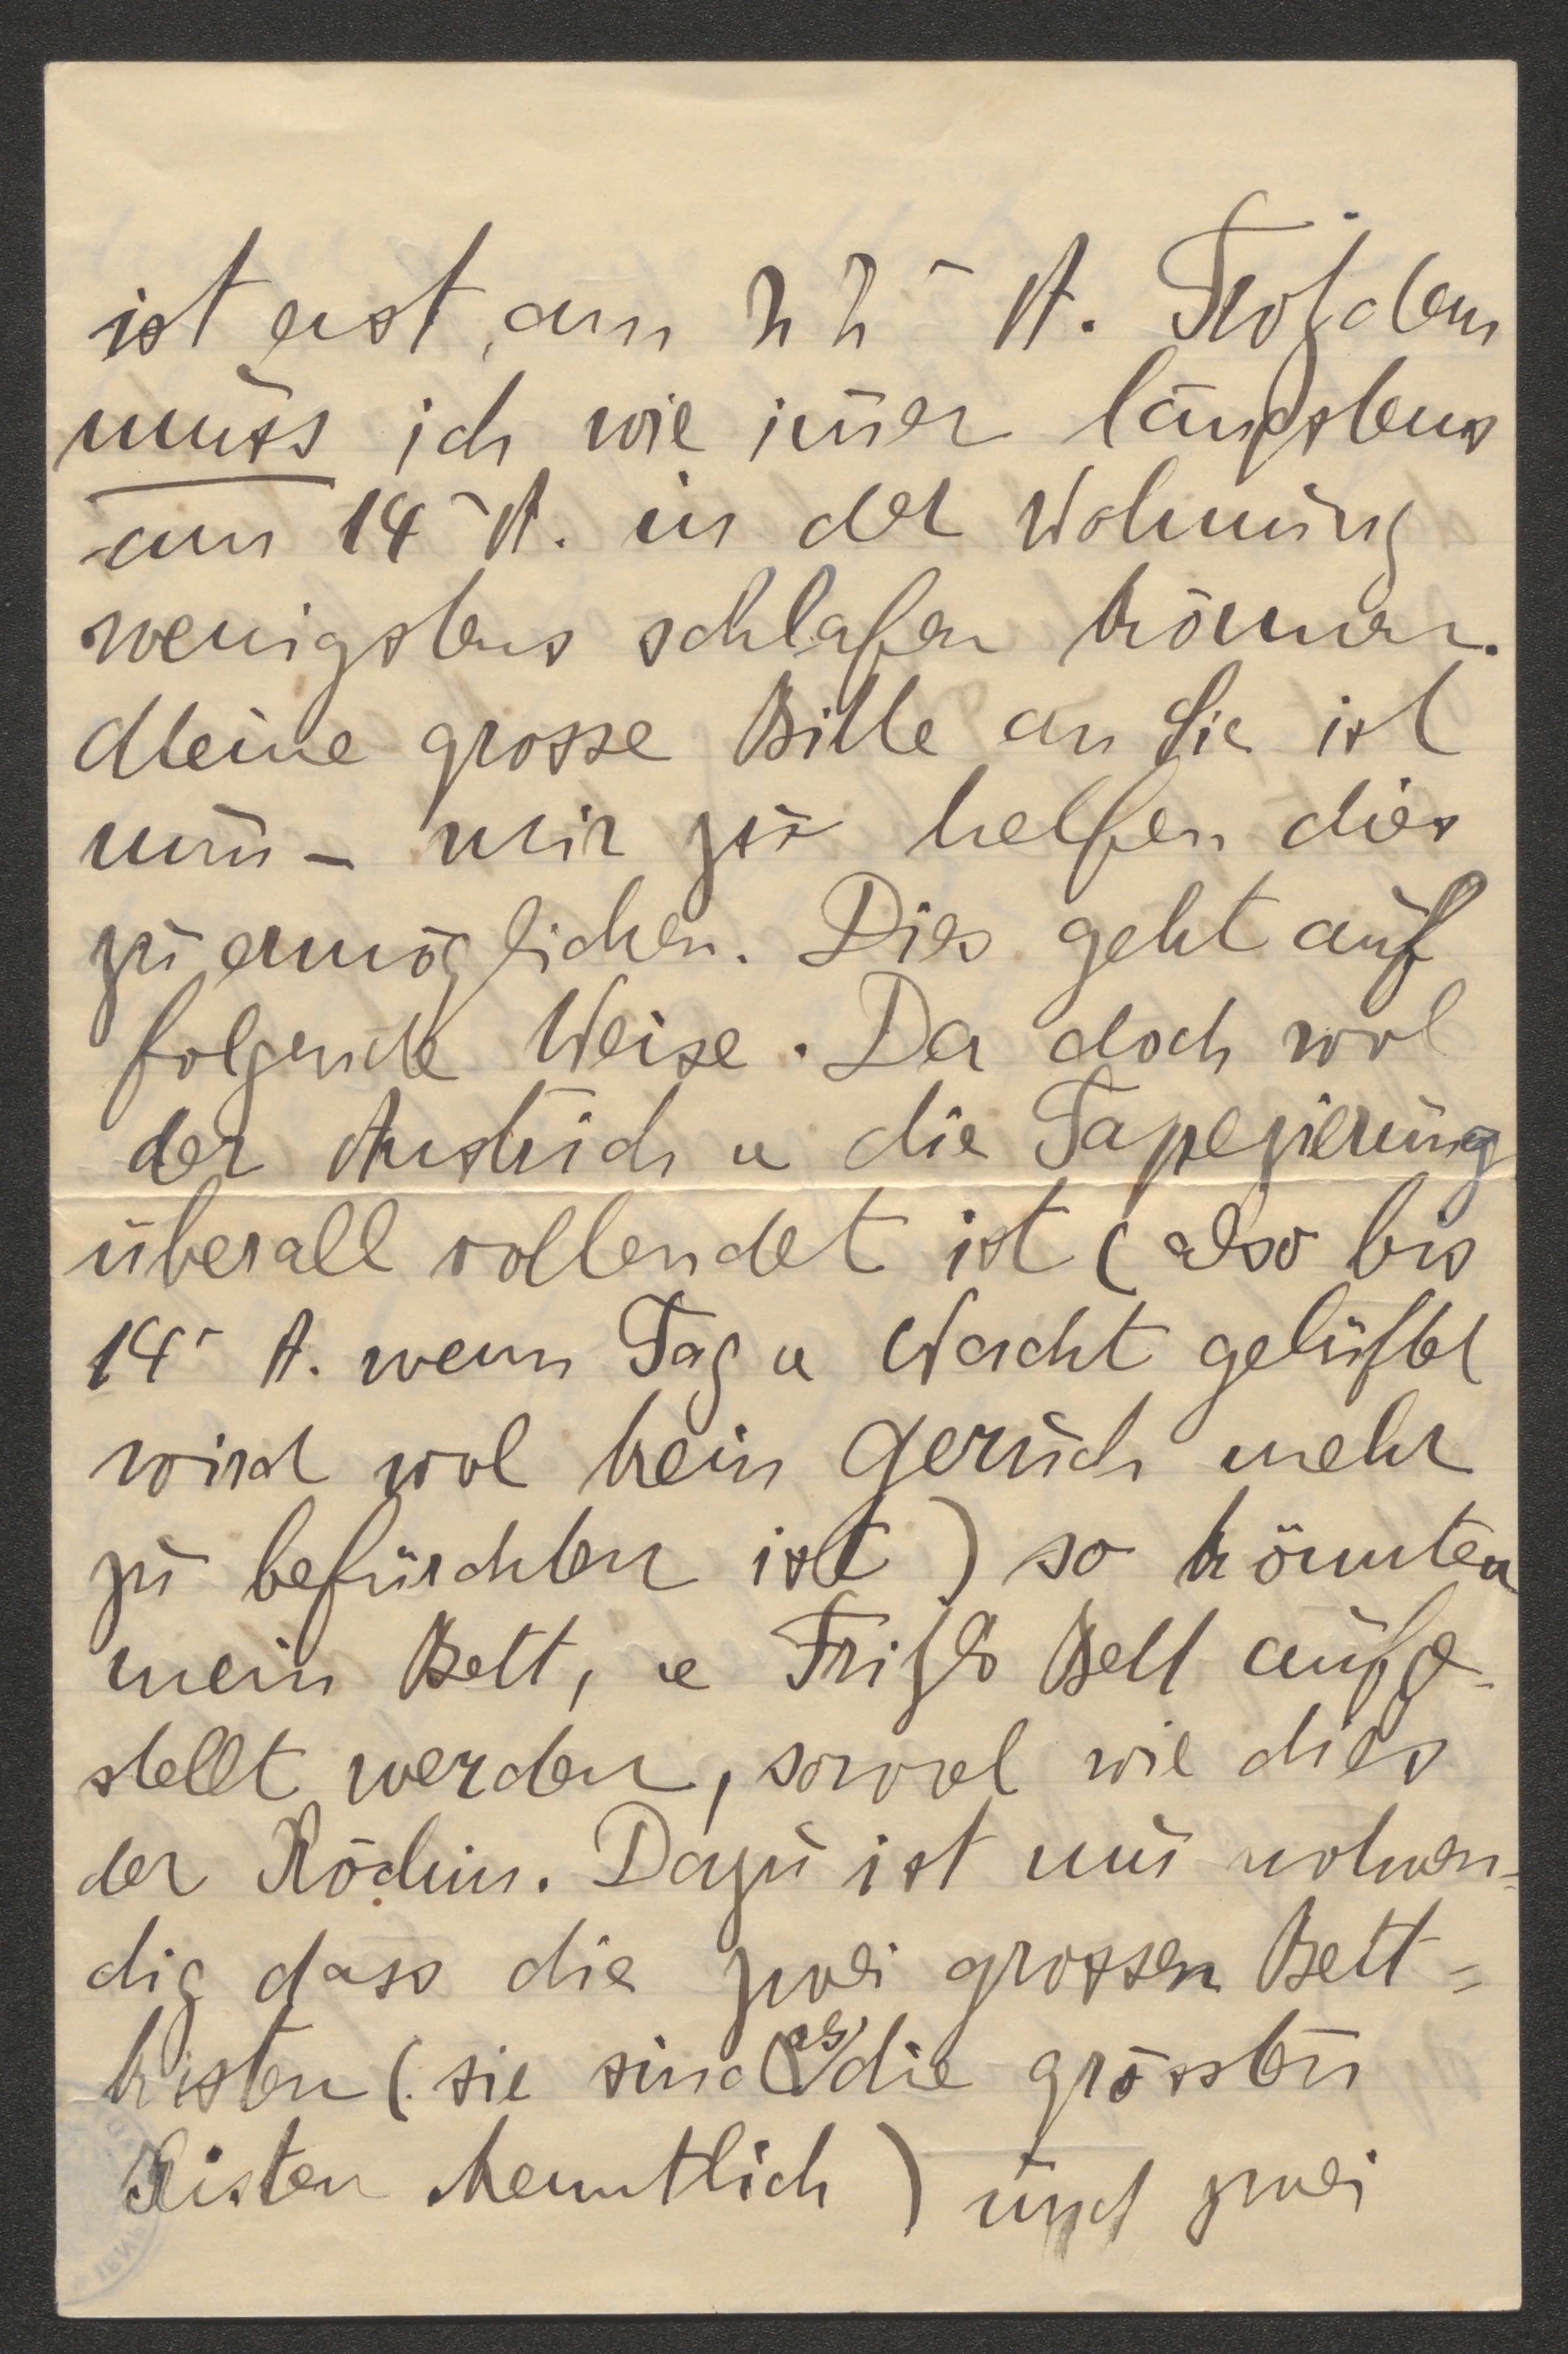 ist erst, am 22 - A. Trotzdem
muss ich wie im̅er längstens
am 14 - A. in der Wohnung
wenigstens schlafen können.
Meine grosse Bitte an Sie ist
nun - mir zu helfen dies
zu ermöglichen. Dies geht auf
folgende Weise. Da doch wol
der Anstrich u die Tapezierung
überall vollendet ist (also bis
14 - A. wenn Tag u Nacht gelüftet
wird wol kein Geruch mehr
zu befürchten ist) so könnten
mein Bett, u Fritzs Bett aufge-
stellt werden, sowol wie dies
der Köchin. Dazu ist nun notwen=
dig dass die zwei grossen Bett=
kisten (sie sind als die grössten
Kisten kenntlich) und zwei